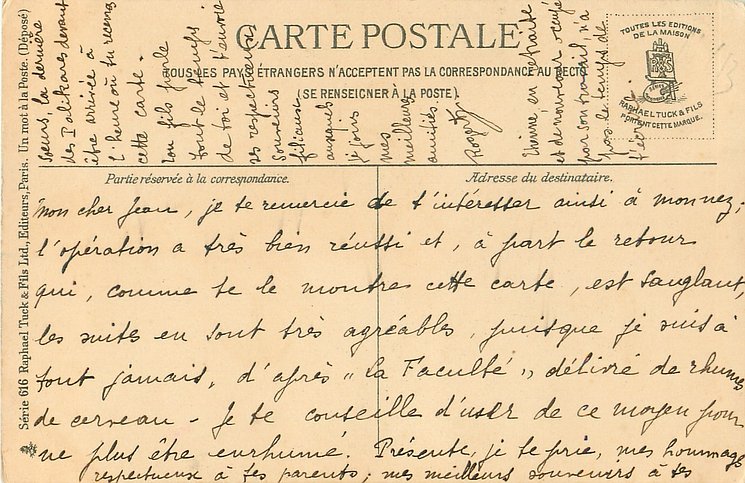 CARTE POSTALE
TOUS LES PAYS ÉTRANGERS N'ACCEPTENT PAS LA CORRESPONDANCE AU RECTO
(SE RENSEIGNER À LA POSTE).
TOUTES LES EDITIONS
DE LA MAISON
RAPHAEL TUCK & FILS
PORTENT CETTE MARQUE.
Partie réservée à la correspondance.
Adresse du destinataire.
Série 616 Raphael Tuck & Fils Ltd., Editeurs, Paris. Un mot à la Poste. (Déposé)
Mon cher Jean, je te remercie de t'intéresser ainsi à mon nez;
l'opération a très bien réussi et, à part le retour
qui, comme te le montre cette carte, est sanglant,
les suites en sont très agréables, puisque je suis à
tout jamais, d'après "La Faculté", délivré de rhumes
de cerveau - Je te conseille d'user de ce moyen pour
ne plus être enrhumé. Présente, je te prie, mes hommages
respectueux à tes parents; mes meilleurs souvenirs à tes
sœurs, la dernière
des Palikares devant
être arrivée à
l'heure où tu recevras
cette carte.
Ton fils parle
tout le temps
de toi et t'envoie
ses respectueux
souvenirs
filiaux
auxquels
je joins
mes
meilleures
amitiés.
Etienne, en retraite
et de nouveau occupé
par son travail, n'a
pas le temps de
t'écrire